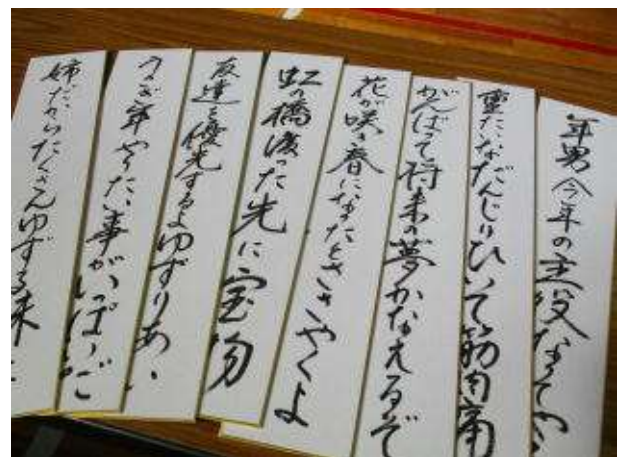 年男今年の主役なって
重たいなだんじりひいて筋肉痛
がんばって将来の夢かなえるぞ
花が咲き春になったとささやくよ
虹の橋渡った先に宝物
友達を優先するよゆずりあい
うさぎ年やりたい事がいっぱいだ
姉だからたくさんゆずる